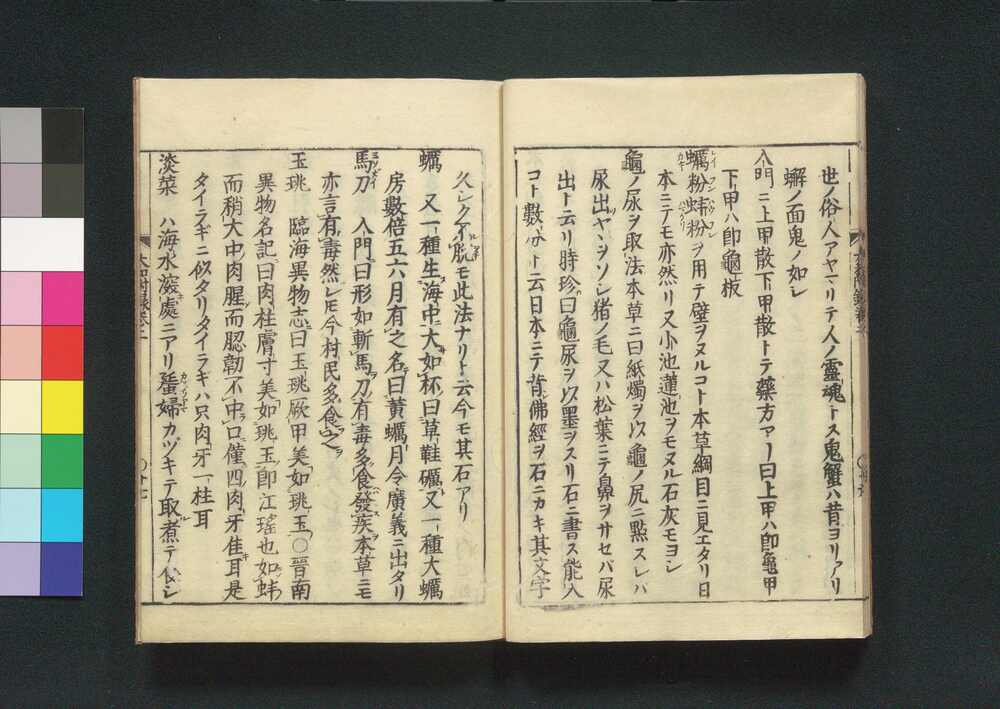 世ノ俗人アヤマリテ人ノ靈魂トス鬼蟹ハ昔ヨリアリ
蠏ノ面鬼ノ如シ
入門ニ上甲散下甲散トテ藥方アリ曰上甲ハ卽龜甲
下甲ハ卽龜板
蠣粉蚌粉ヲ用テ壁ヲヌルコト本草綱目ニ見エタリ日
本ニテモ亦然リ又小池蓮池ヲモヌル石灰モヨシ
龜ノ尿ヲ取法本草ニ曰紙燭ヲ以龜ノ尻ニ點スレハ
尿出ヤスヲソシ猪ノ毛又ハ松葉ニテ鼻ヲサセバ尿
出ト云リ時珍曰龜尿ヲ以墨ヲスリ石ニ書ス能入
コト數分ト云日本ニテ昔佛經ヲ石ニカキ其文字
久シク不脱モ此法ナリト云今モ其石アリ
蠣 又一種生海中大如杯曰草鞋蠣又一種大蠣
房數倍五六月有之名曰黃蠣月令廣義ニ出タリ
馬刀 入門曰形如斬馬刀有毒多食發疾本草ニモ
亦言有毒然レ𪜈今村民多食之
玉珧 臨海異物志曰玉珧厥甲美如珧玉〇晉南
異物名記曰肉柱膚寸美如珧玉卽江瑤也如蚌
而稍大中肉腥而䏰韌不中口僅四肉牙佳耳是
タイラギニ似タリタイラキハ只肉牙一柱耳
淡菜 ハ海水淡處ニアリ蜑婦カヅキテ取煮テ食シ